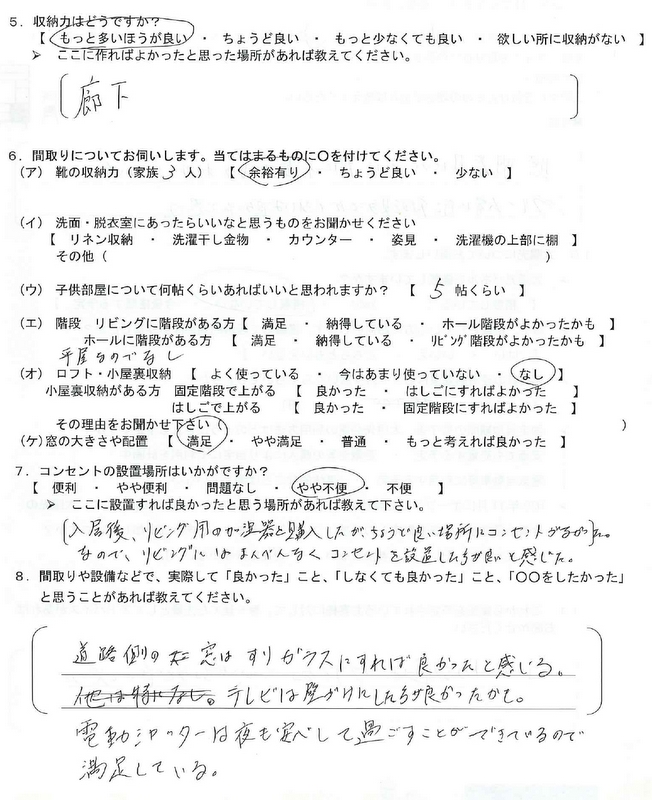 ５．収納力はどうですか？
【 もっと多いほうが良い ・ ちょうど良い ・ もっと少なくても良い ・ 欲しい所に収納がない 】
➢ ここに作ればよかったと思った場所があれば教えてください。
廊下
６．間取りについてお伺いします。当てはまるものに〇を付けてください。
（ア） 靴の収納力（家族 3 人） 【 余裕有り ・ ちょうど良い ・ 少ない 】
（イ） 洗面・脱衣室にあったらいいなと思うものをお聞かせください
【 リネン収納 ・ 洗濯干し金物 ・ カウンター ・ 姿見 ・ 洗濯機の上部に棚 】
その他（ ）
（ウ） 子供部屋について何帖くらいあればいいと思われますか？ 【 5 帖くらい 】
（エ） 階段 リビングに階段がある方【 満足 ・ 納得している ・ ホール階段がよかったかも 】
ホールに階段がある方 【 満足 ・ 納得している ・ リビング階段がよかったかも 】
平屋なのでなし
（オ） ロフト・小屋裏収納 【 よく使っている ・ 今はあまり使っていない ・ なし 】
小屋裏収納がある方 固定階段で上がる 【 良かった ・ はしごにすればよかった 】
はしごで上がる 【 良かった ・ 固定階段にすればよかった 】
その理由をお聞かせ下さい（ ）
（ケ）窓の大きさや配置 【 満足 ・ やや満足 ・ 普通 ・ もっと考えれば良かった 】
７．コンセントの設置場所はいかがですか？
【 便利 ・ やや便利 ・ 問題なし ・ やや不便 ・ 不便 】
➢ ここに設置すれば良かったと思う場所があれば教えて下さい。
入居後、リビング用の加湿器を購入したがちょうど良い場所にコンセントがなかった。
なので、リビングにはまんべんなくコンセントを設置したら良いと感じた。
８．間取りや設備などで、実際して「良かった」こと、「しなくても良かった」こと、「〇〇をしたかった」
と思うことがあれば教えてください。
道路側の窓はすりガラスにすれば良かったと感じる。
他は特になし。テレビは壁がけにしたら良かったかも。
電動シャッターは夜も安心して過ごすことができているので
満足している。